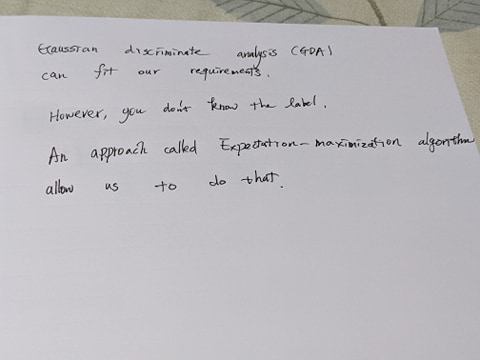 Gaussian discriminate analysis (GDA)
can fit our requirements.
However, you don't know the label.
An approach called Expectation-maximization algorithm
allow us to do that.